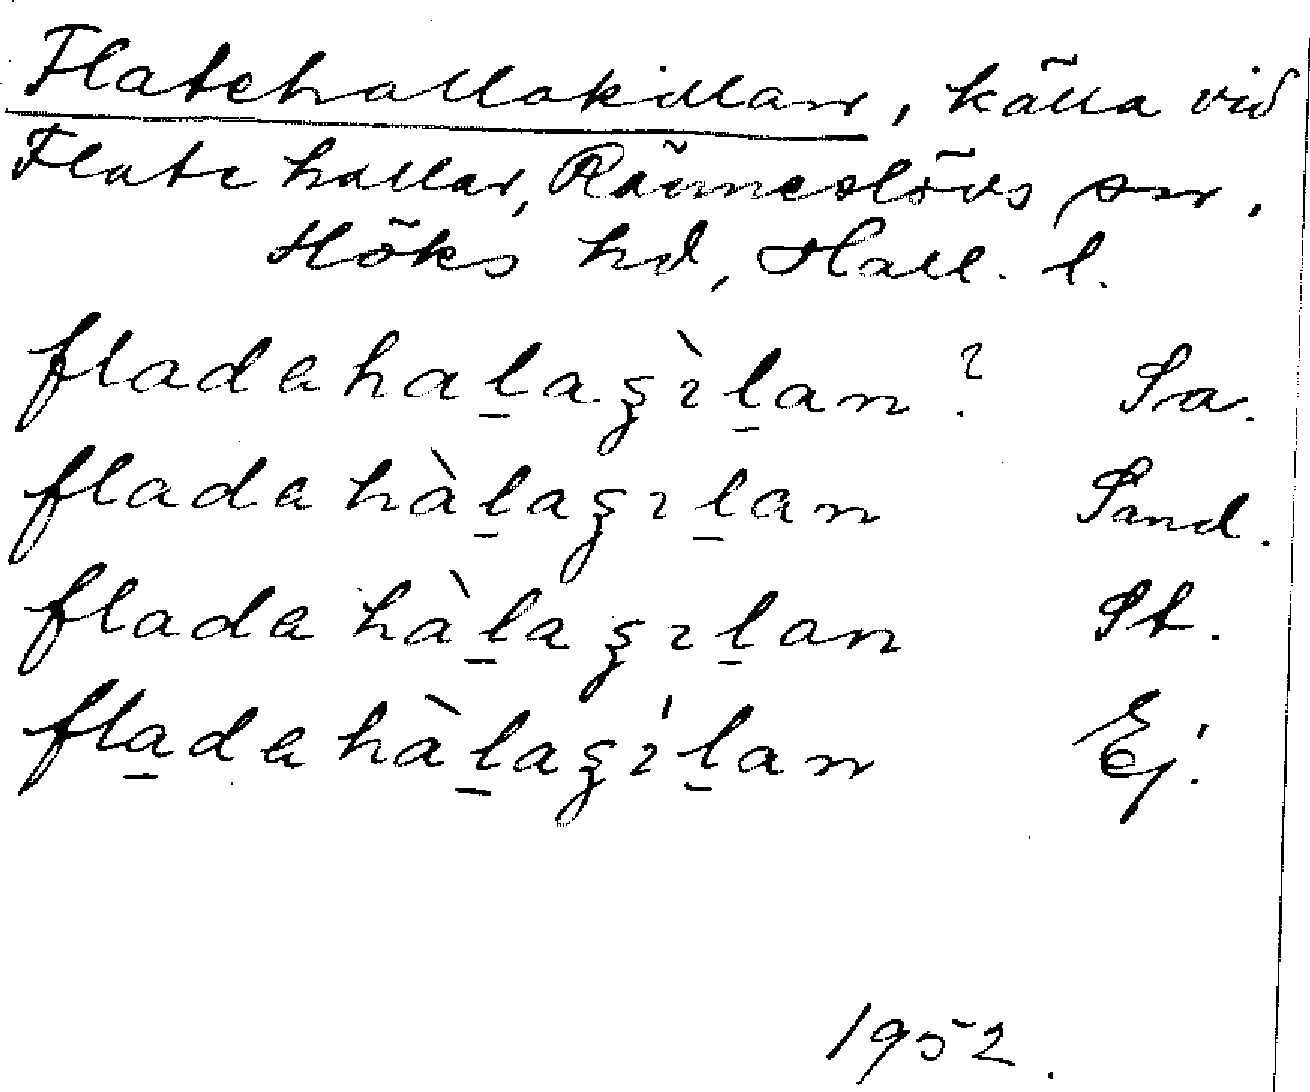 Flatehallakillan, källa vid
Flate hallar, Ränneslövs sn,
Höks hd, Hall. l.
fladahaḻagìḻan ? Sa.
fladahàḻagiḻan Sand.
fladahàḻagiḻan St.
fla̱dahàḻagi'ḻan Ej.
1952.